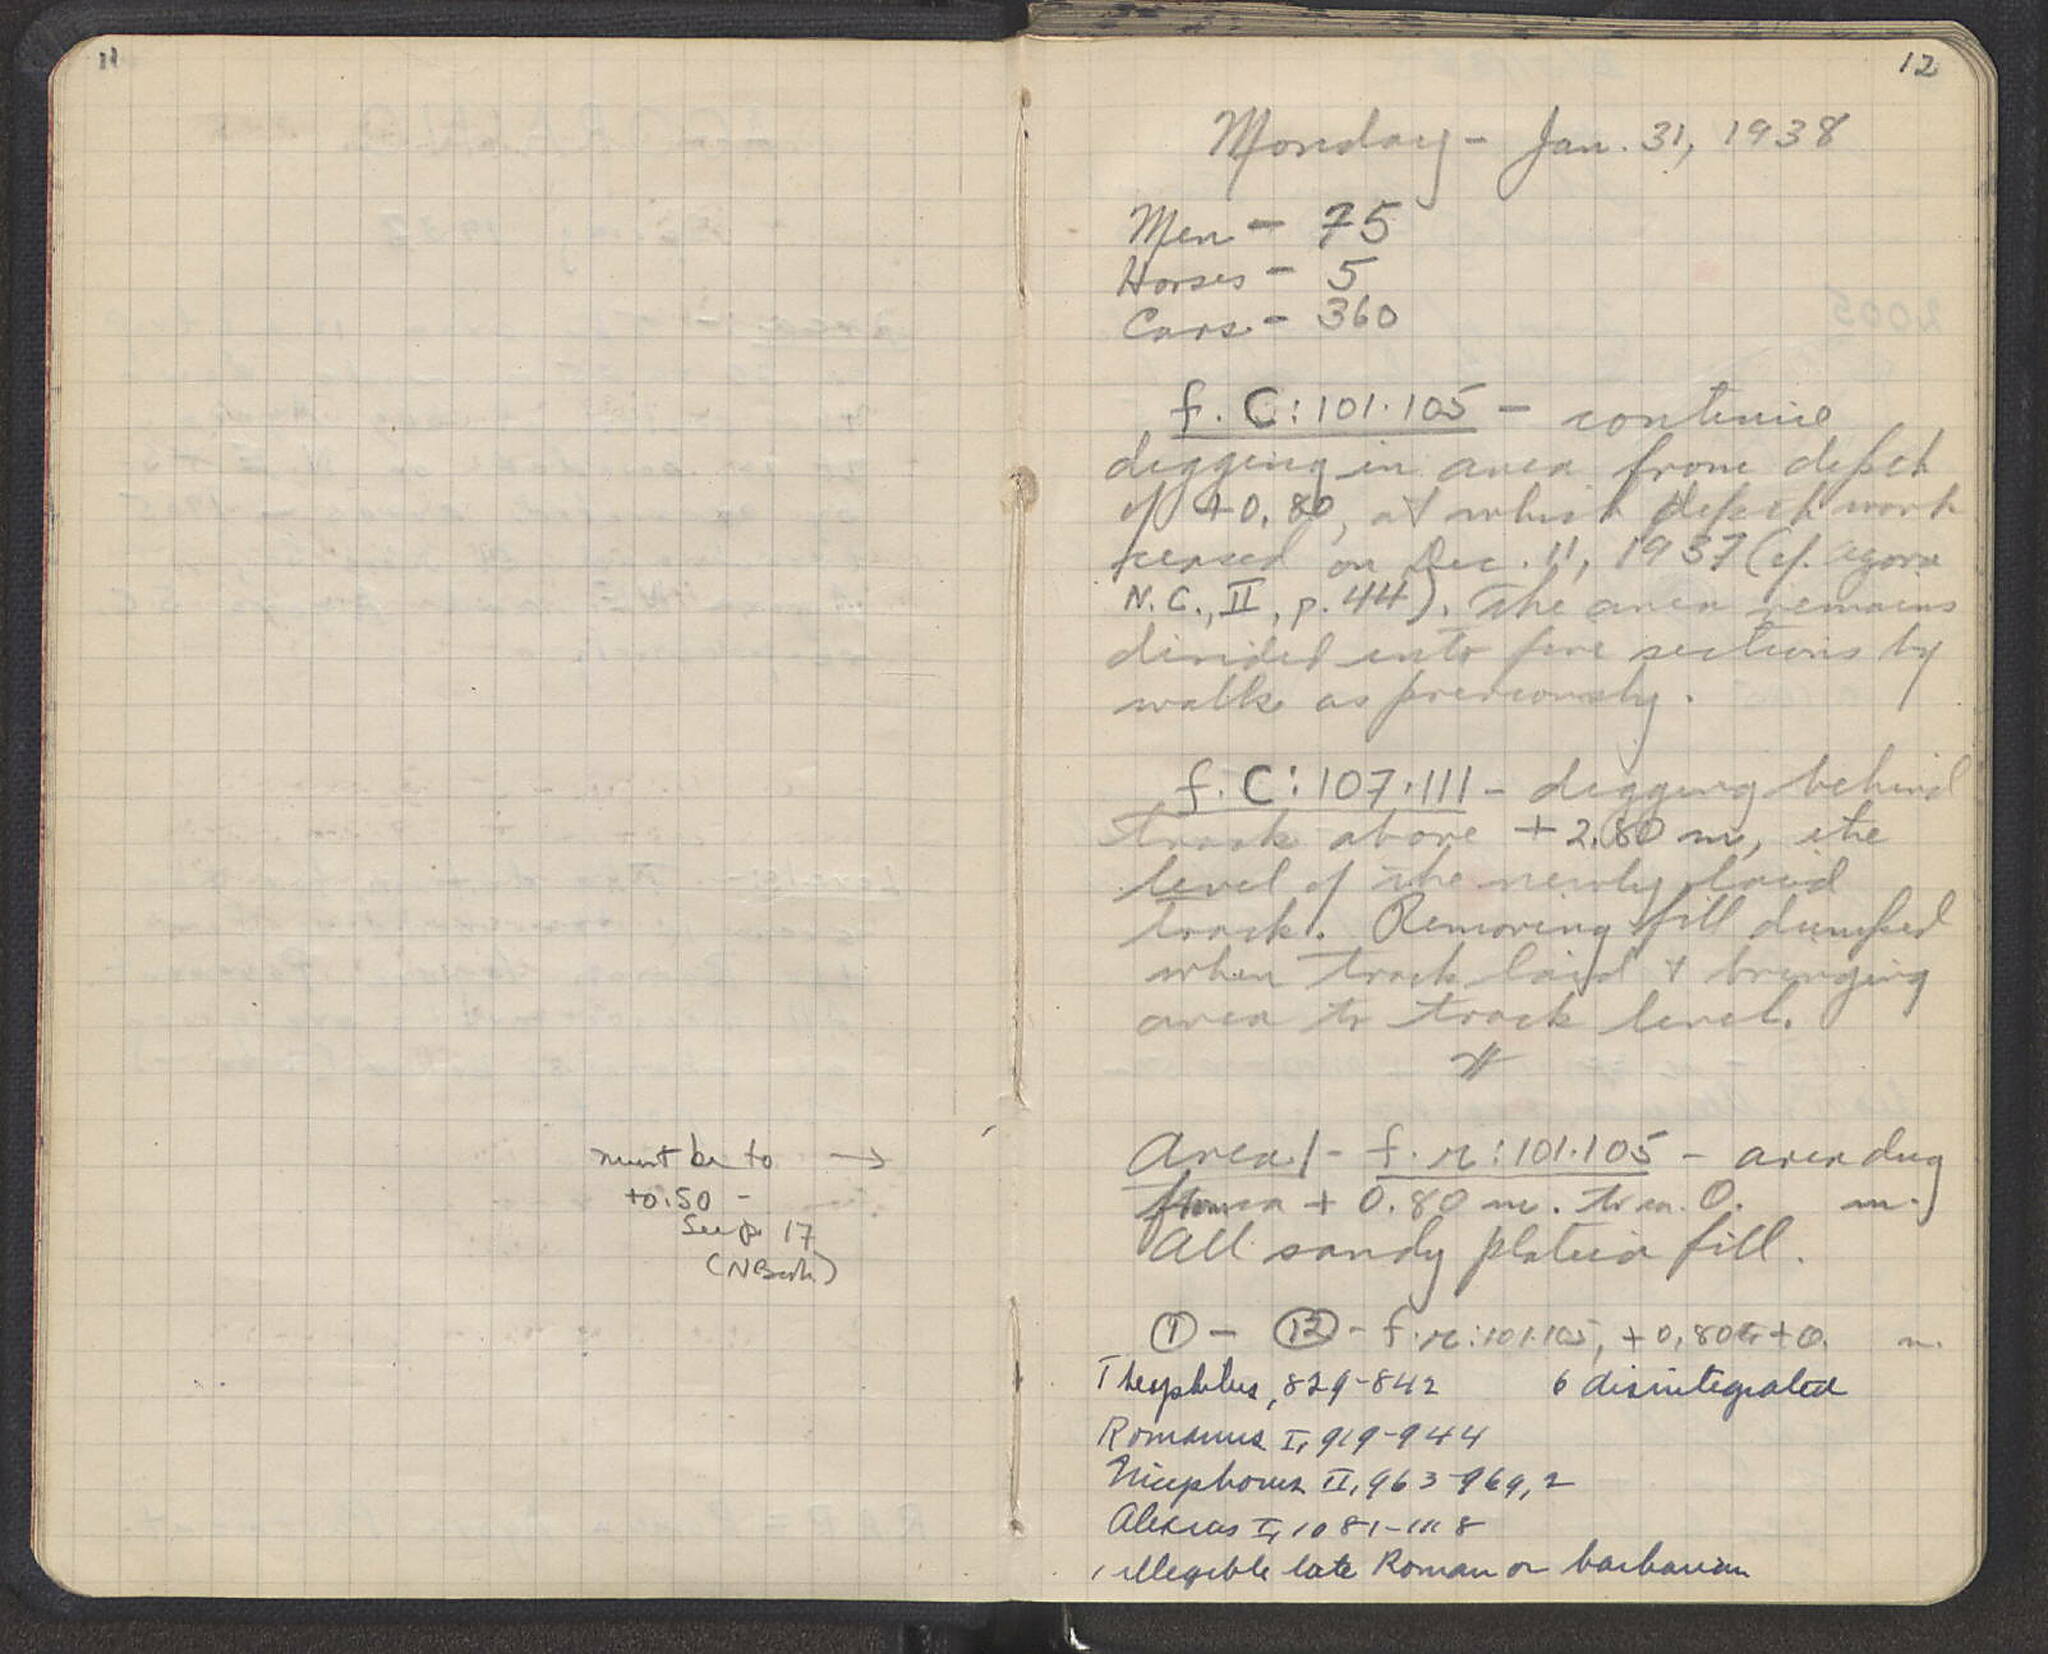 11
must be to →
+0.50 -
See p. 17
(NBook)
12
Monday - Jan. 31, 1938
Men - 75
Horses - 5
Cars - 360
f. C:101·105 - continue
digging in area from depth
of +0.80, at which depth work
ceased on Dec. 11, 1937 (cf. Agora
N.C., II, p. 44). The area remains
divided into five sections by
walls as previously.
f. C:107·111 - digging behind
track above +2.80 m, the
level of the newly laid
track. Removing fill dumped
when track laid + bringing
area to track level.
Area 1 - f. r:101·105 - area dug
from + 0.80 m. to ca. 0. m.
All sandy plateia fill.
① - ⑫ - f. r:101·105, +0.80 to +0. m.
Theophilus, 829-842 6 disintegrated
Romanus I, 919-944
Nicephorus II, 963-969, 2
Alexius I, 1081-1118
1 illegible late Roman or barbarian